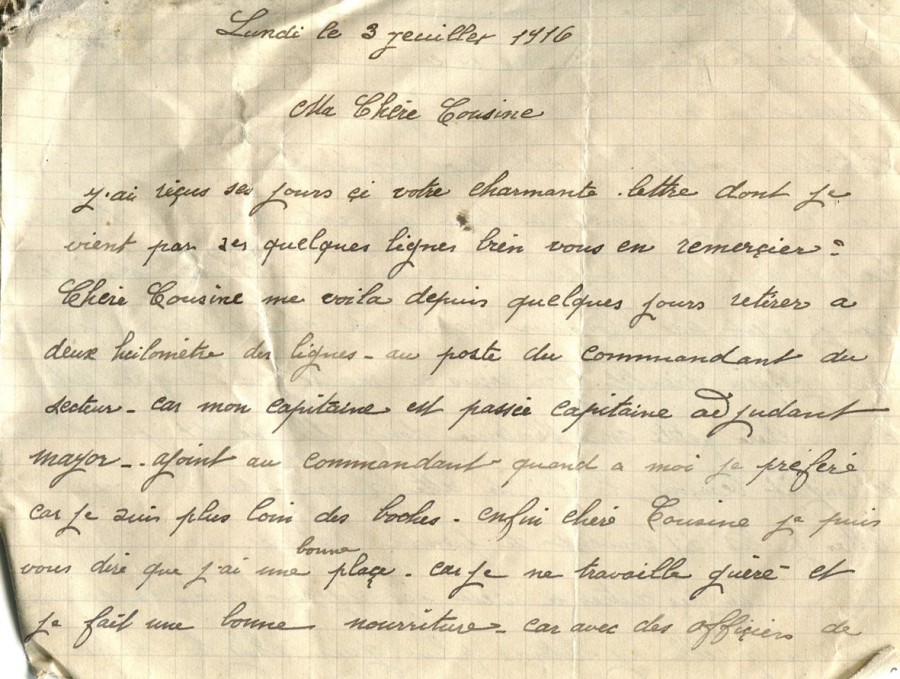 Lundi le 3 jeuiller 1916
Ma Chère Cousine
j'ai réçus ses jours çi votre charmante lettre dont je
vient par ses quelques lignes bien vous en remerçier :
Chère Cousine me voila depuis quelques jours retirer a
deux kilomètre des lignes - au poste du commandant du
secteur - car mon capitaine est passée capitaine adjudant
mayor - ajoint au commandant quand a moi je préfèré
car je suis plus loin des boches - enfin chéré Cousine je puis
vous dire que j'ai une bonne plaçe - car je ne travaille guèré et
je fait une bonne nourriture - car avec des offiçiers de